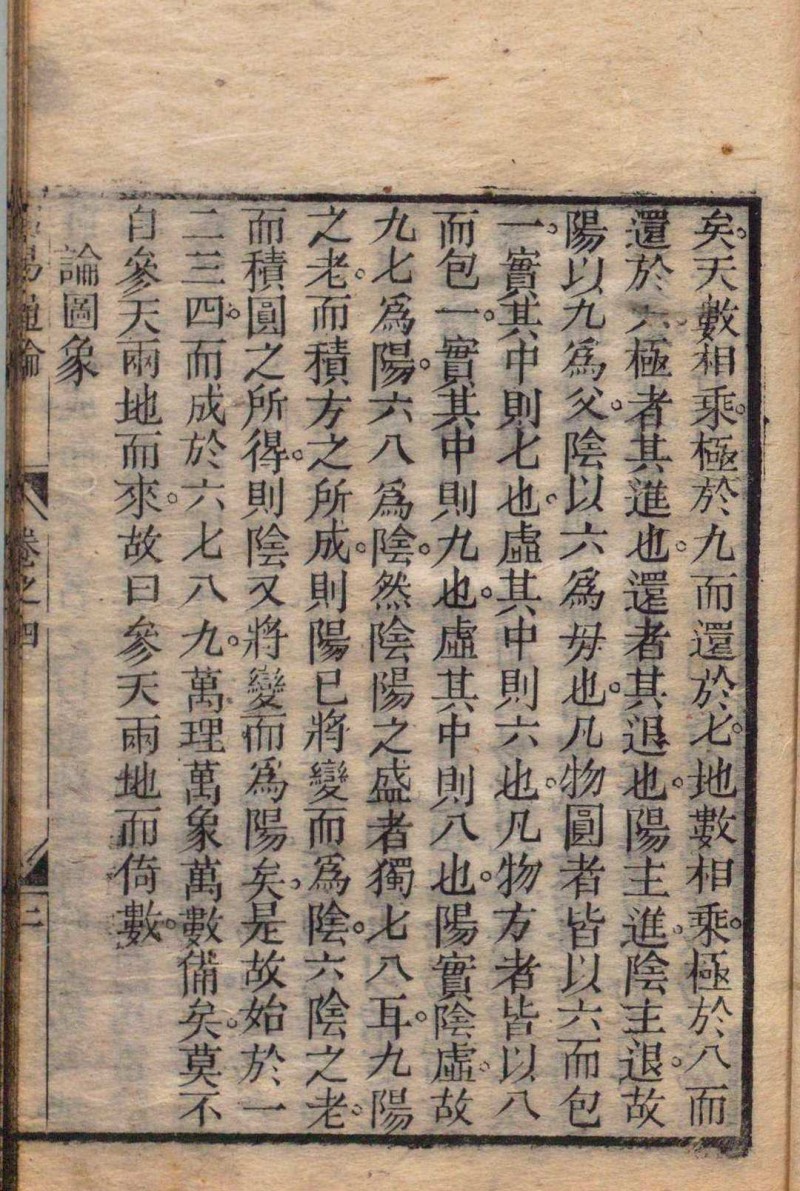 矣。天數相乘。極於九而還於七。地數相乘。極於八而
還於六。極者其進也。還者其退也。陽主進。陰主退。故
陽以九爲父。陰以六爲母也。凡物圓者皆以六而包
一。實其中則七也。虛其中則六也。凡物方者皆以八
而包一。實其中則九也。虛其中則八也。陽實陰虛。故
九七爲陽。六八爲陰。然陰陽之盛者獨七八耳。九陽
之老。而積方之所成。則陽已將變而爲陰。六陰之老。
而積圓之所得。則陰又將變而爲陽矣。是故始於一
二三四。而成於六七八九。萬理萬象萬數備矣。莫不
自參天兩地而來。故曰參天兩地而倚數。
論圖象
周易通論
卷之四
二